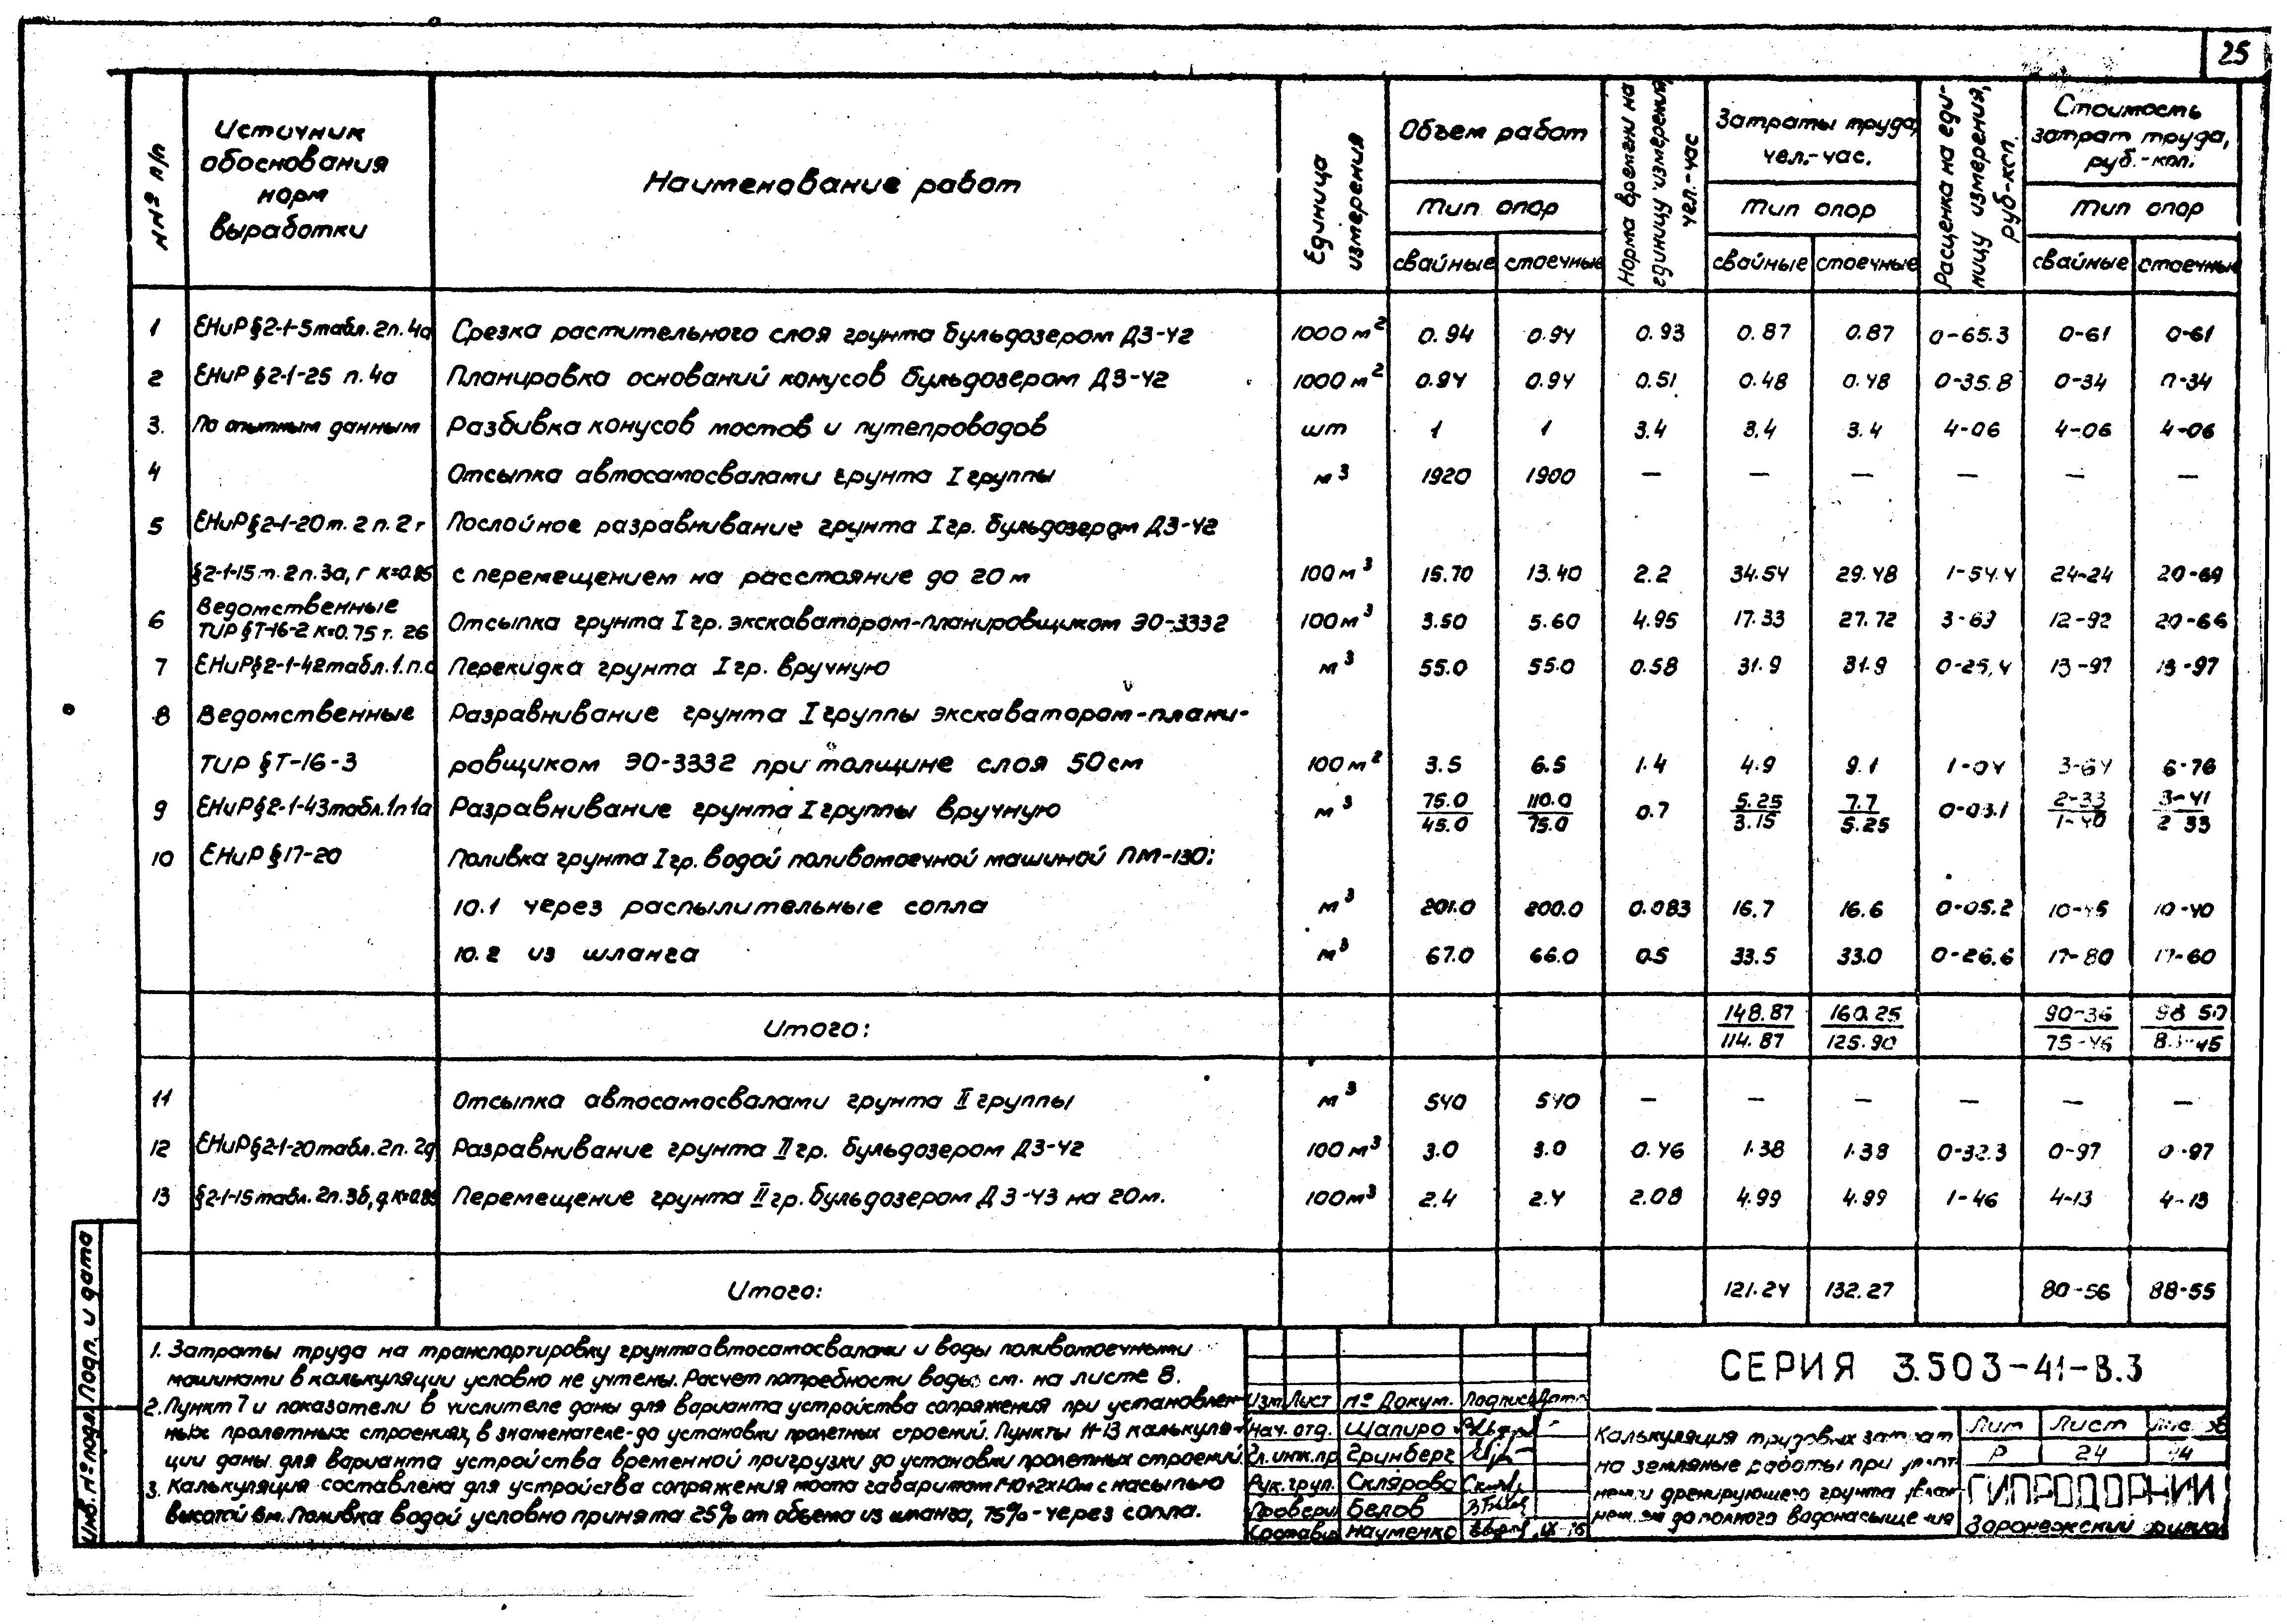 25
№№ п/п
Источник обоснования норм выработки
Наименование работ
Единица измерения
Объем работ
Норма времени на единицу измерения, чел.-час
Затраты труда, чел.-час.
Расценка на единицу измерения, руб-коп.
Стоимость затрат труда, руб.-коп.
Тип опор
Тип опор
Тип опор
свайные стоечные свайные стоечные свайные стоечные
1 ЕНиР §2-1-5 табл. 2п. 4а Срезка растительного слоя грунта бульдозером ДЗ-42 1000 м² 0.94 0.94 0.93 0.87 0.87 0-65.3 0-61 0-61
2 ЕНиР §2-1-25 п. 4а Планировка оснований конусов бульдозером ДЗ-42 1000 м² 0.94 0.94 0.51 0.48 0.48 0-35.8 0-34 0-34
3. По опытным данным Разбивка конусов мостов и путепроводов шт 1 1 3.4 3.4 3.4 4-06 4-06 4-06
4 Отсыпка автосамосвалами грунта I группы м³ 1920 1900 — — — — — —
5 ЕНиР §2-1-20 т. 2 п. 2 г Послойное разравнивание грунта I гр. бульдозером ДЗ-42
§2-1-15 т. 2 п. 3а, г к=0.85 с перемещением на расстояние до 20 м 100 м³ 15.70 13.40 2.2 34.54 29.48 1-54.4 24-24 20-69
6 Ведомственные
ТИР §Т-16-2 к=0.75 т. 26 Отсыпка грунта I гр. экскаватором-планировщиком ЭО-3332 100 м³ 3.50 5.60 4.95 17.33 27.72 3-69 12-92 20-66
7 ЕНиР §2-1-42 табл. 1. п. а Перекидка грунта I гр. вручную м³ 55.0 55.0 0.58 31.9 31.9 0-25,4 13-97 13-97
8 Ведомственные Разравнивание грунта I группы экскаватором-плани-
ТИР §Т-16-3 ровщиком ЭО-3332 при толщине слоя 50 см 100 м² 3.5 6.5 1.4 4.9 9.1 1-04 3-64 6-76
9 ЕНиР §2-1-43 табл. 1 п 1а Разравнивание грунта I группы вручную м³ 75.0/45.0 110.0/75.0 0.7 5.25/3.15 7.7/5.25 0-03.1 2-33/1-40 3-41/2 33
10 ЕНиР §17-20 Поливка грунта I гр. водой поливомоечной машиной ПМ-130:
10.1 через распылительные сопла м³ 201.0 200.0 0.083 16.7 16.6 0-05.2 10-45 10-40
10.2 из шланга м³ 67.0 66.0 0.5 33.5 33.0 0-26.6 17-80 17-60
Итого: 148.87/114.87 160.25/125.90 90-36/75-46 98 50/83-45
11 Отсыпка автосамосвалами грунта II группы м³ 540 540 — — — — — —
12 ЕНиР §2-1-20 табл. 2п. 2д Разравнивание грунта II гр. бульдозером ДЗ-42 100 м³ 3.0 3.0 0.46 1.38 1.38 0-32.3 0-97 0-97
13 §2-1-15 табл. 2п. 3б, д. к=0.85 Перемещение грунта II гр. бульдозером ДЗ-43 на 20 м. 100 м³ 2.4 2.4 2.08 4.99 4.99 1-46 4-13 4-13
Итого: 121.24 132.27 80-56 88-55
1. Затраты труда на транспортировку грунта автосамосвалами и воды поливомоечными
машинами в калькуляции условно не учтены. Расчет потребности воды см. на листе 8.
2. Пункт 7 и показатели в числителе даны для варианта устройства сопряжения при установлен-
ных пролетных строениях, в знаменателе-до установки пролетных строений. Пункты 11-13 калькуля-
ции даны для варианта устройства временной пригрузки до установки пролетных строений.
3. Калькуляция составлена для устройства сопряжения моста габаритом Г-10+2х1.0м с насыпью
высотой 8м. Поливка водой условно принята 25% от объема из шланга, 75%-через сопла.
Инв. № подл. Подп. и дата
Изм Лист № Докум. Подпись Дата
Нач. отд. Шапиро
Гл. инж. пр Гринберг
Рук. груп. Склярова
Проверил Белов
Составил Науменко IX-76
СЕРИЯ 3.503-41-В.3
Калькуляция трудовых затрат
на земляные работы при
дренирующего грунта
до полного водонасыщения
Лит Лист
Р 24
ГИПРОДОРНИИ
Воронежский филиал